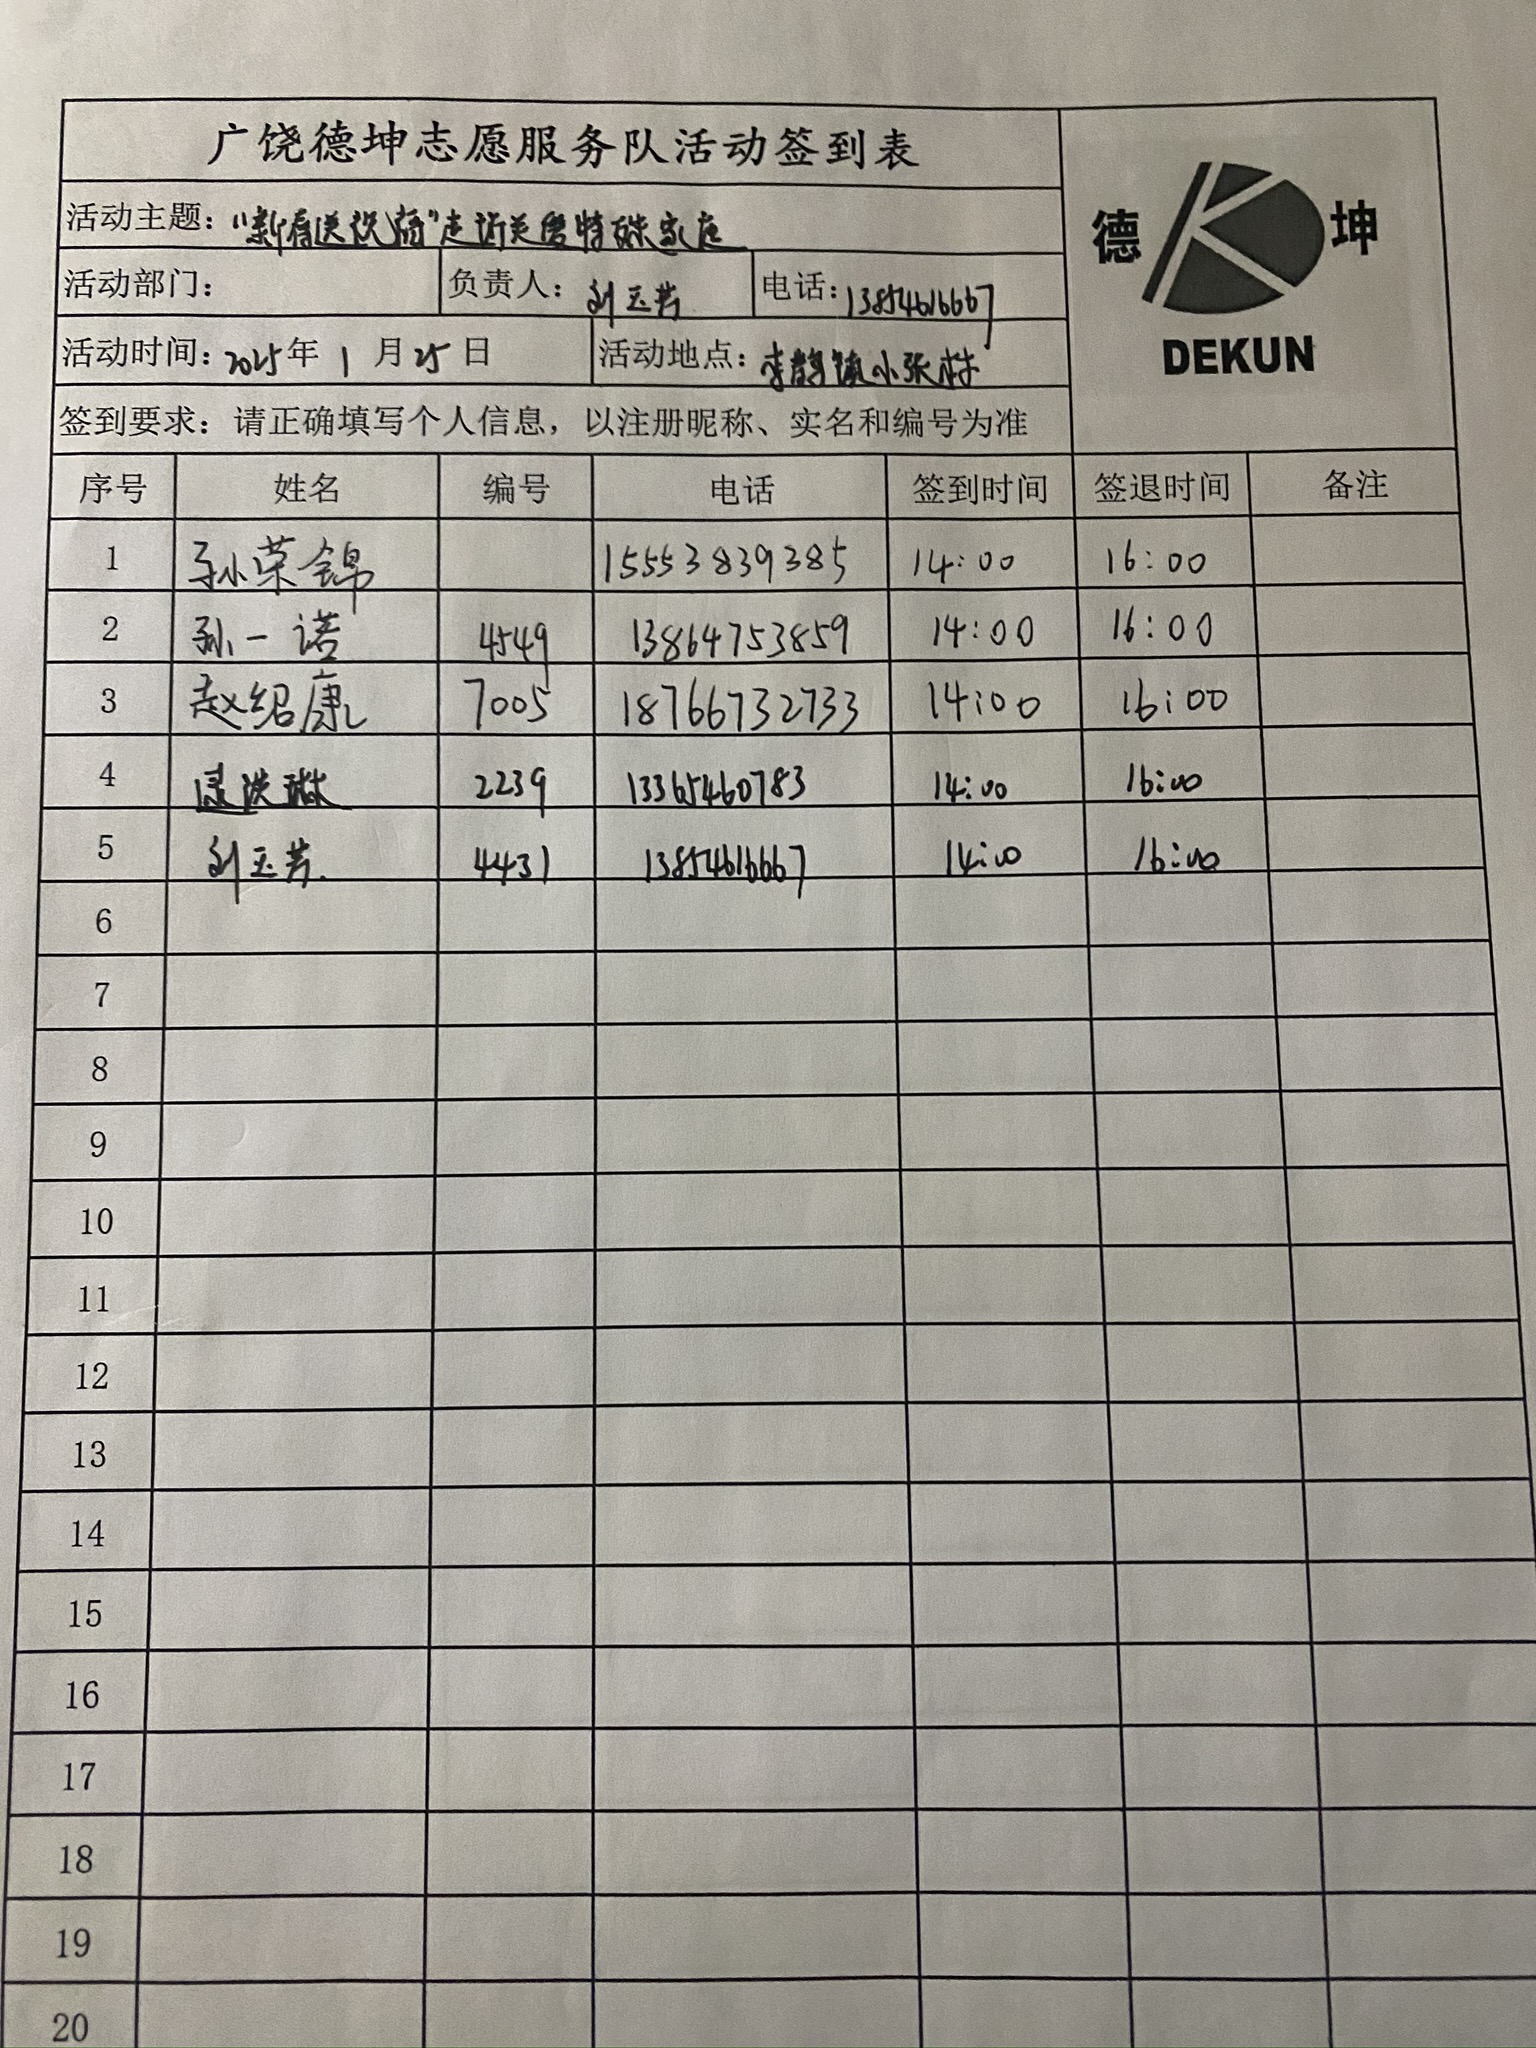 广饶德坤志愿服务队活动签到表
德 坤
DEKUN
活动主题：“新春送祝福”走访关爱特殊家庭
活动部门： 负责人：刘玉芳 电话：13854616667
活动时间：2025年1月25日 活动地点：李鹊镇小张村
签到要求：请正确填写个人信息，以注册昵称、实名和编号为准
序号 姓名 编号 电话 签到时间 签退时间 备注
1 孙荣锦 15553839385 14:00 16:00
2 孙一诺 4549 13864753859 14:00 16:00
3 赵绍康 7005 18766732733 14:00 16:00
4 洪琳 2239 13365460783 14:00 16:00
5 刘玉芳 4431 13854616667 14:00 16:00
6
7
8
9
10
11
12
13
14
15
16
17
18
19
20